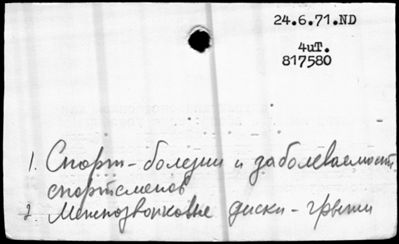 24.6.71.ND
4иT.
817580
1. Спорт - болезни и заболеваемость
спортсменов
2. Межпозвонковые диски - грыжи